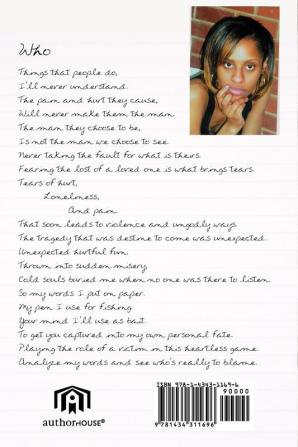 Who
Things that people do,
I'll never understand.
The pain and hurt they cause,
Will never make them the man.
The man they choose to be,
Is not the man we choose to see.
Never taking the fault for what is theirs.
Fearing the lost of a loved one is what brings tears.
Tears of hurt,
Loneliness,
And pain
That soon leads to violence and ungodly ways.
The tragedy that was destine to come was unexpected.
Unexpected hurtful fun.
Thrown into sudden misery,
Cold souls buried me when no one was there to listen.
So my words I put on paper.
My pen I use for fishing.
Your mind I'll use as bait.
To get you captured into my own personal fate.
Playing the role of a victim in this heartless game.
Analyze my words and see who's really to blame.
ISBN 978-1-4343-1169-6
90000
9 781434 311696
authorHOUSE®